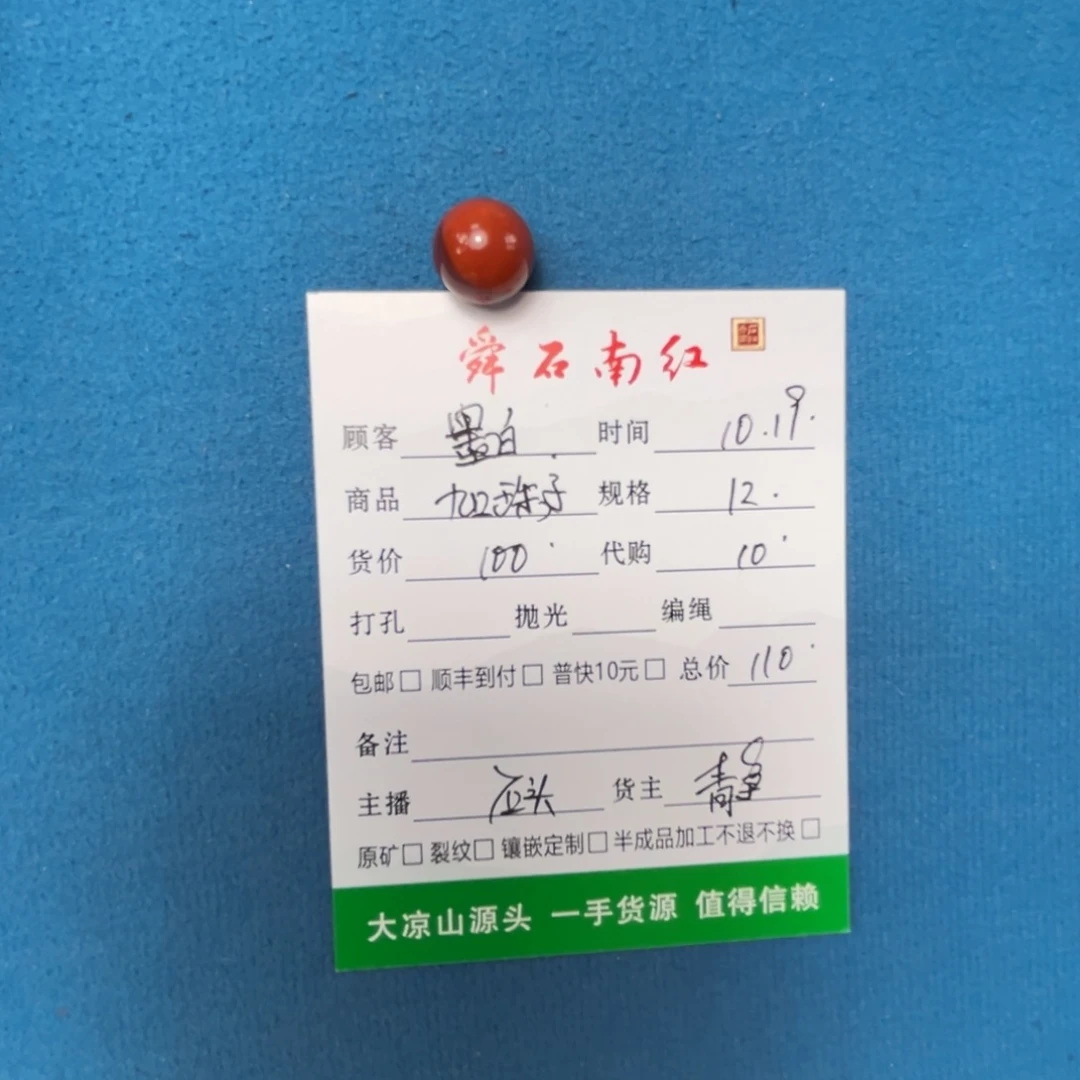 舜石南红
顾客 墨白 时间 10.19.
商品 九口珠子 规格 12.
货价 100 代购 10
打孔 抛光 编绳
包邮□ 顺丰到付□ 普快10元□ 总价 110
备注
主播 石头 货主 静
原矿□ 裂纹□ 镶嵌定制□ 半成品加工不退不换□
大凉山源头 一手货源 值得信赖